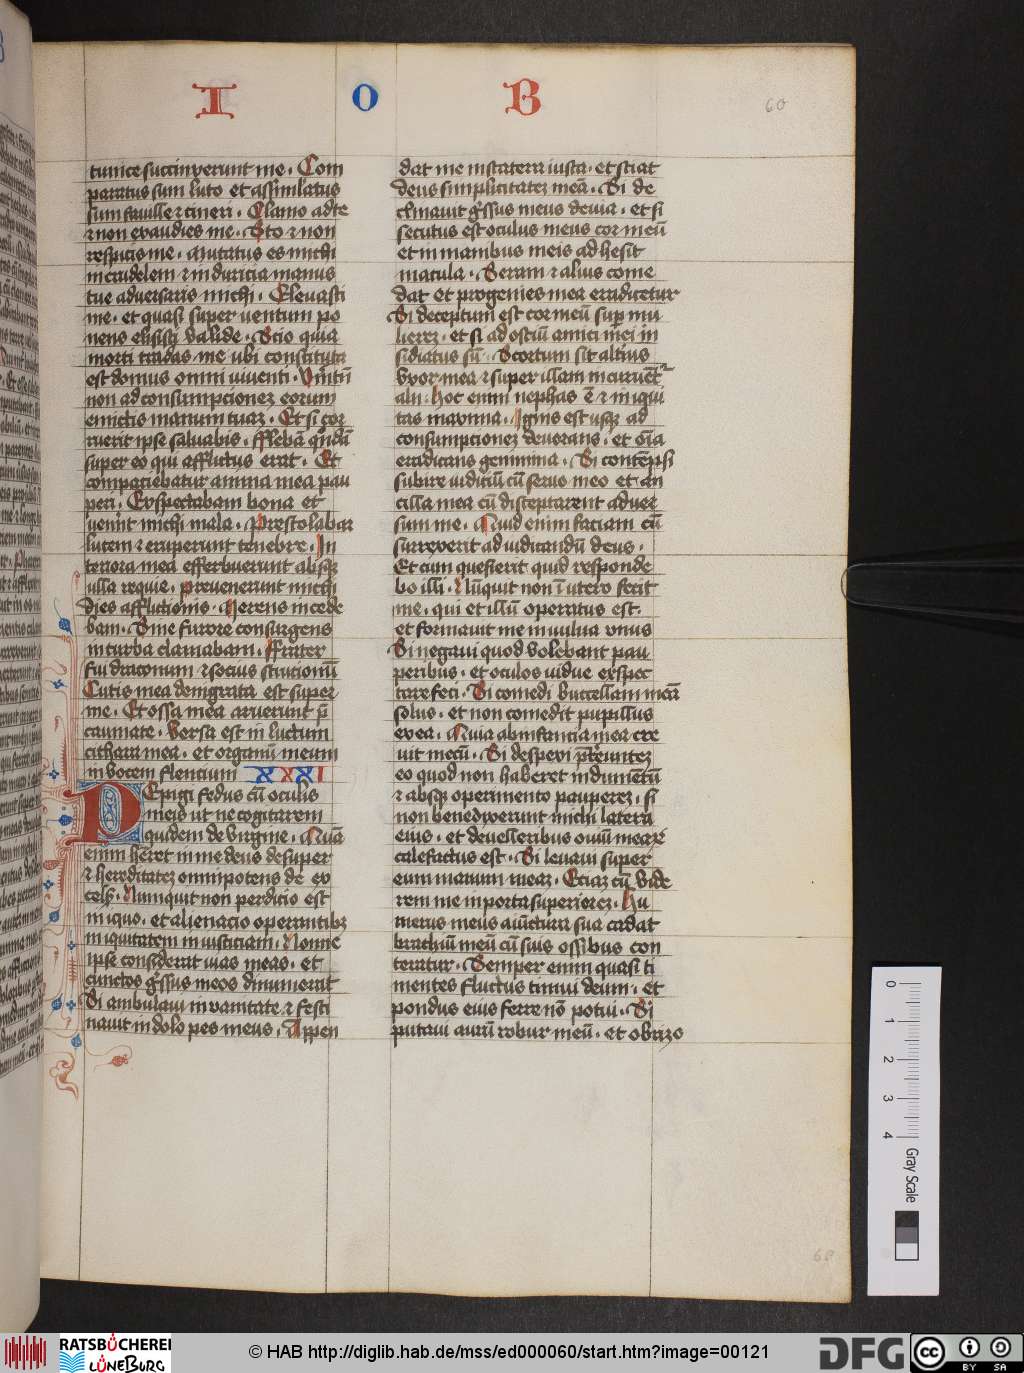 I O B
60
tunice succinxerunt me. Com
paratus sum luto et assimilatus
sum faville ⁊ cineri. Clamo ad te
⁊ non exaudies me. Sto ⁊ non
respicis me. Mutatus es michi
in crudelem ⁊ in duricia manus
tue adversaris michi. Elevasti
me. et quasi super ventum po
nens elisisti valide. Scio quia
morti tradas me ubi constituta
est domus omni viventi. 
non ad consumpcionez eorum
emictis manum tuaz. Et si cor
ruerit ipse salvabis. fflebā qndā
super eo qui afflictus erat. Et
compaciebatur anima mea pau
peri. Exspectabam bona et
venerit michi mala. Prestolabar
lucem ⁊ eruperunt tenebre. In
teriora mea efferbuerunt absqz
ulla requie. prevenerunt michi
dies afflictionis. Merens incede
bam. Sine furore consurgens
in turba clamabam. Ffrater
fui draconum ⁊ socius strucionū
Cutis mea denigrata est super
me. Et ossa mea aruerunt p̄
caumate. Versa est in luctum
cithara mea. et organū meum
in vocem flencium XXXI
Pepigi fedus cū oculis
meis ut ne cogitarem
quidem de virgine. Quā
enim heret in me deus desuper
⁊ hereditatez omnipotens de ex
celsis. Numquit non perdicio est
iniquo. et alienacio operantibz
iniquitatem iniusticiam. Nonne
ipse considerat vias meas. et
cunctos gssus meos dinumerat
Si ambulavi in vanitate ⁊ festi
navit in dolo pes meus. Appen
dat me in statera iusta. et sciat
deus simplicitatez meā. Si de
clinavit gssus meus de via. et si
secutus est oculus meus cor meū
et in manibus meis adhesit
macula. Seram ⁊ alius come
dat et progenies mea eradicetur
Si deceptum est cor meū sup mu
lierez. et si ad ostiū amici mei in
sidiatus sū. Scortum sit alterius
vxor mea ⁊ super illam incurvent
alii. hoc enim nephas ē ⁊ iniqui
tas maxima. Ignis est usqz ad
consumpcionez devorans. et oīa
eradicans genimina. Si contēpsi
subire iudiciū cū servo meo et an
cilla mea cū disceptarent adver
sum me. Quid enim faciam cū
surrexerit ad iudicandū deus.
Et cum quesierit quid responde
bo illi. Nūquit non ī utero fecit
me. qui et illū operatus est.
et formavit me in vulva unus
Si negavi quod volebant pau
peribus. et oculos vidue exspec
tare feci. Si comedi buccellam meā
solus. et non comedit pupillus
ex ea. Quia ab infantia mea cre
vit mecū. Si despexi ptereuntez
eo quod non haberet indumētū
⁊ absqz operimento pauperez. si
non benedixerunt michi latera
eius. et de velleribus ovium mearum
calefactus est. Si levavi super
eum manum meaz. Eciaz cū vide
rem me in porta superiorez. Hu
merus meus a iūctura sua cadat
brachiū meū cū suis ossibus con
teratur. Semper enim quasi tu
mentes fluctus timui deum. et
pondus eius ferre nō potui. Si
putavi aurū robur meū. et obrizo
68
0 1 2 3 4
Gray Scale
RATSBÜCHEREI
LÜNEBURG
© HAB http://diglib.hab.de/mss/ed000060/start.htm?image=00121
DFG
cc BY SA